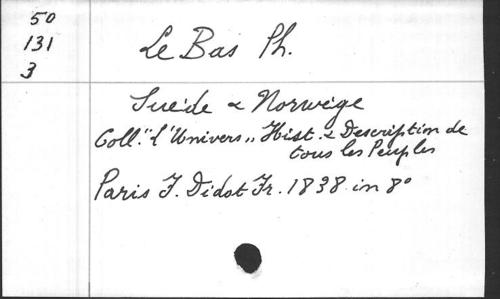 50
131
3
Le Bas Ph.
Suède & Norwège
Coll. "l'Univers„ Hist. & Description de
tous les Peuples
Paris F. Didot Fr. 1838 in 8°